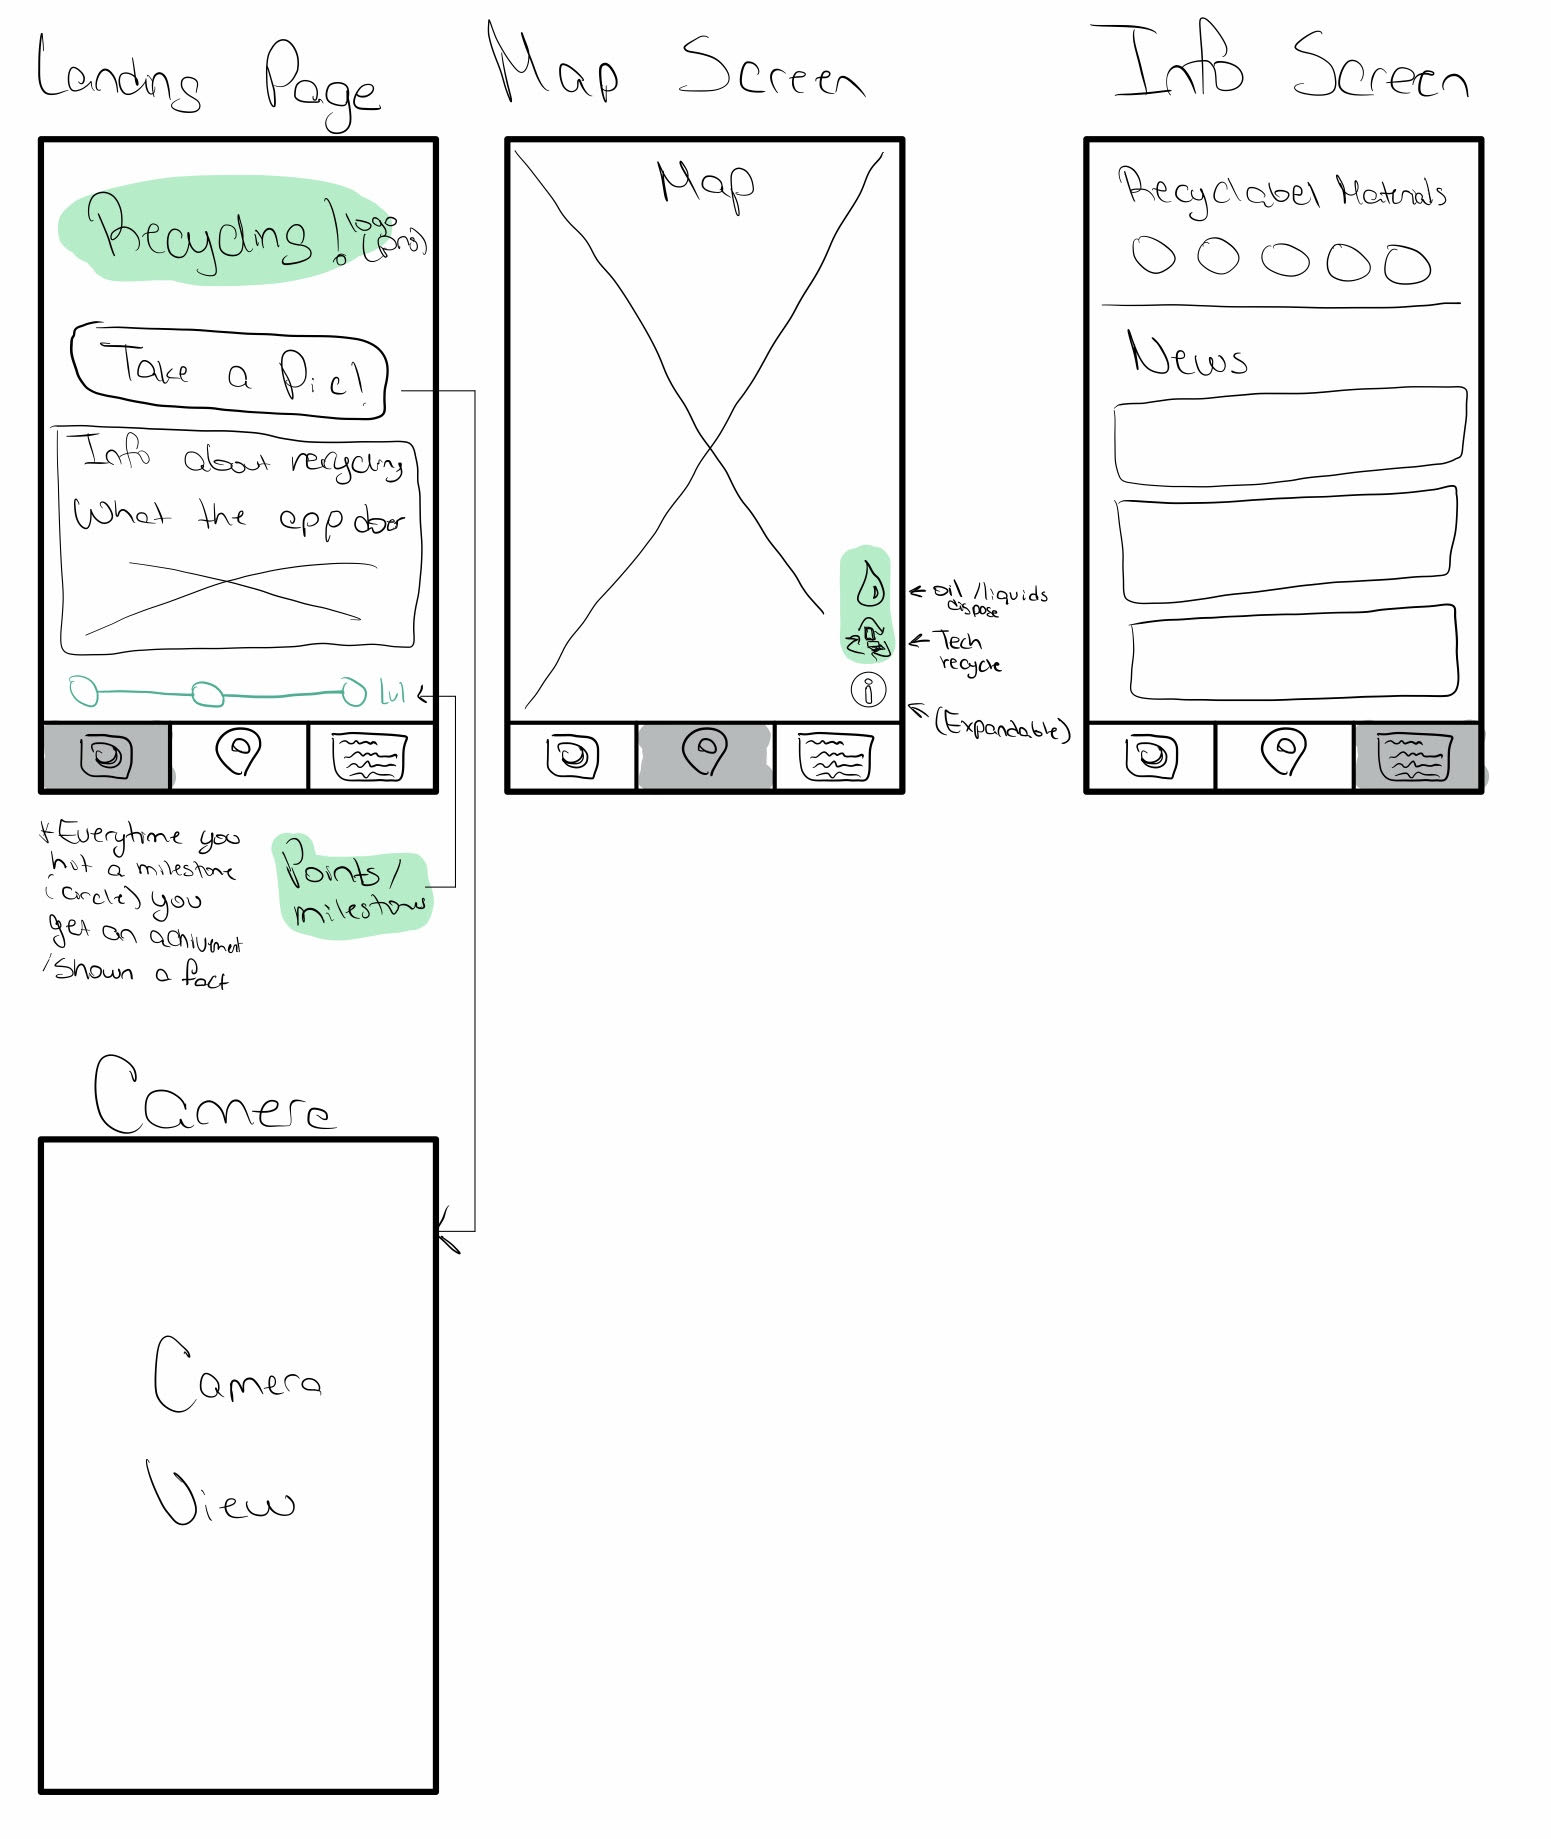 Landing Page
Recycling!
logo
(png)
Take a Pic!
Info about recycling
What the app doer
lvl
*Everytime you
hit a milestone
(circle) you
get an achivement
/shown a fact
Points/
milestones
Map Screen
Map
oil/liquids
dispose
Tech
recycle
i
(Expandable)
Info Screen
Recyclabel Materials
News
Camera
Camera
View